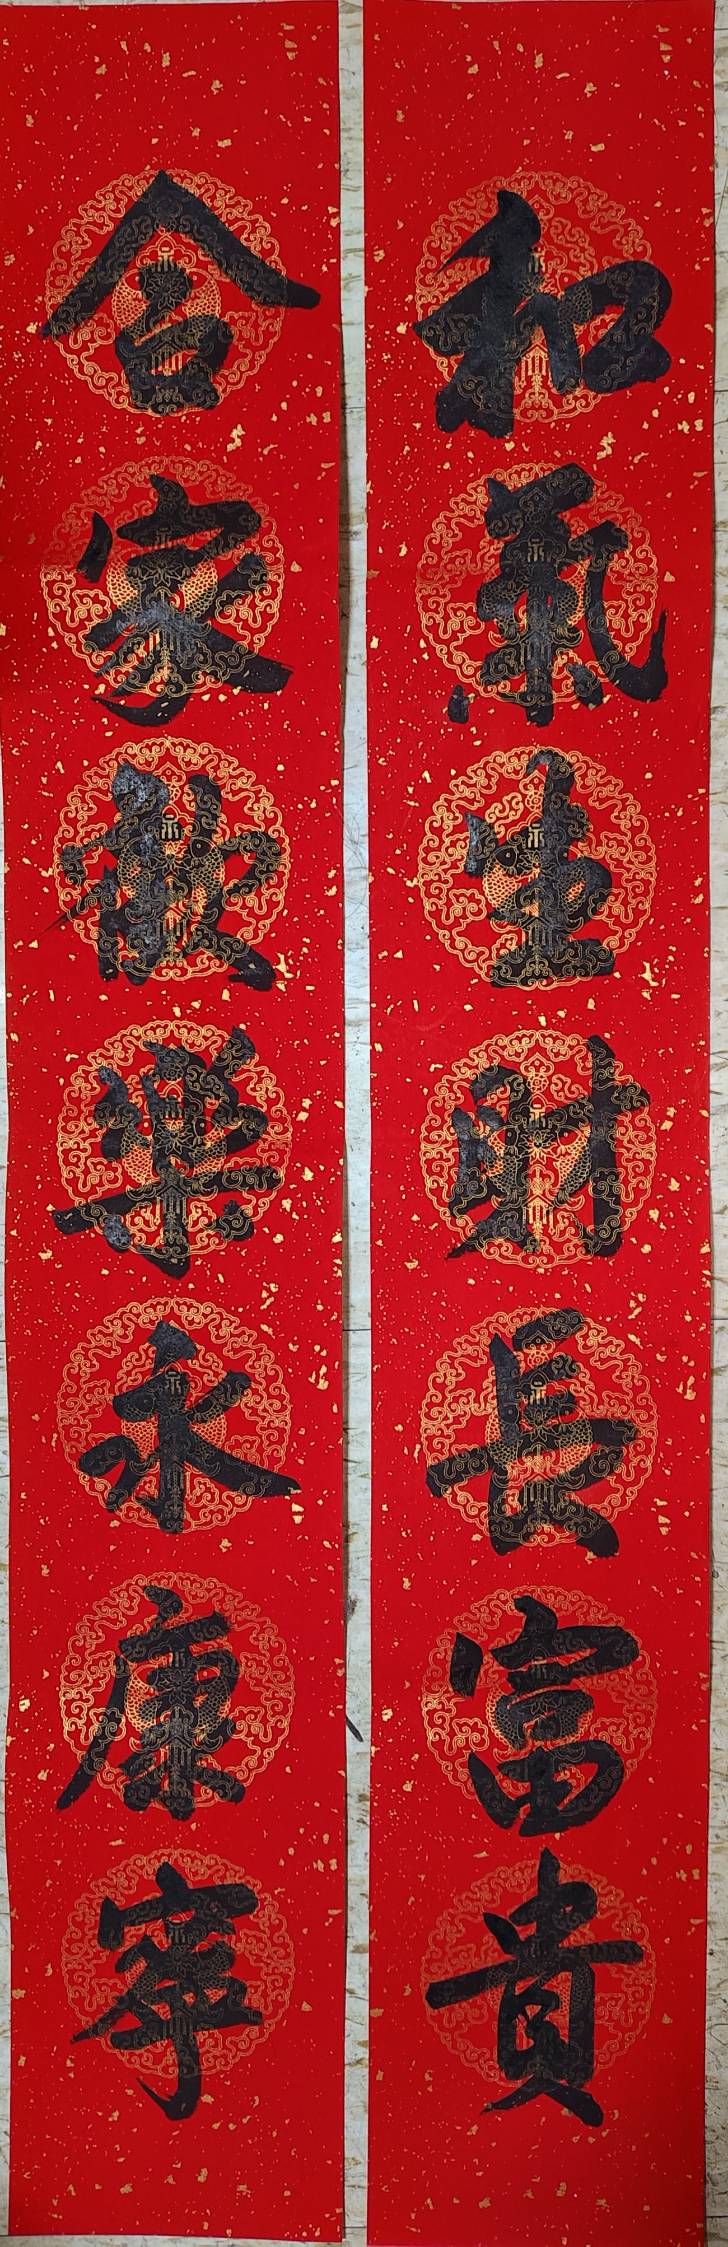 和氣生財長富貴
合家歡樂永康寧